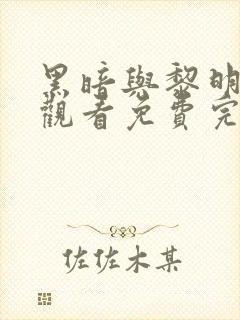 黑暗與黎明
觀看免費完
佐佐木某